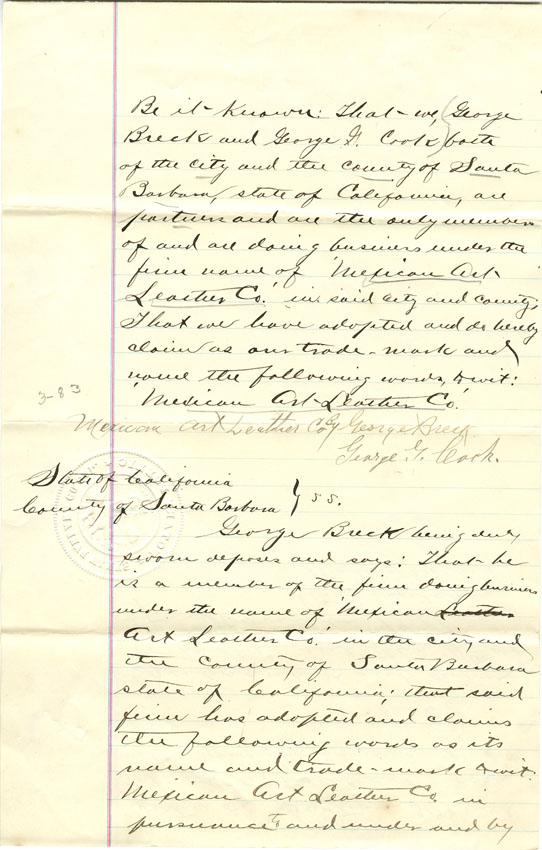 Be it known: That we, (George
Breck and George G. Cook) both
of the city and the county of Santa
Barbara, state of California, are
partners and are the only members
of and are doing business under the
firm name of 'Mexican Art
Leather Co.' in said city and county;
That we have adopted and do hereby
claim as our trade-mark and
name the following words, to wit:
'Mexican Art Leather Co.'
3-83
Mexican Art Leather Co By George Breck.
George G. Cook.
State of California
County of Santa Barbara } SS.
George Breck being duly
sworn deposes and says: That he
is a member of the firm doing business
under the name of 'Mexican Leather
Art Leather Co.' in the city and
the county of Santa Barbara
state of California; that said
firm has adopted and claims
the following words as its
name and trade-mark to wit:
Mexican Art Leather Co. in
pursuance to and under and by